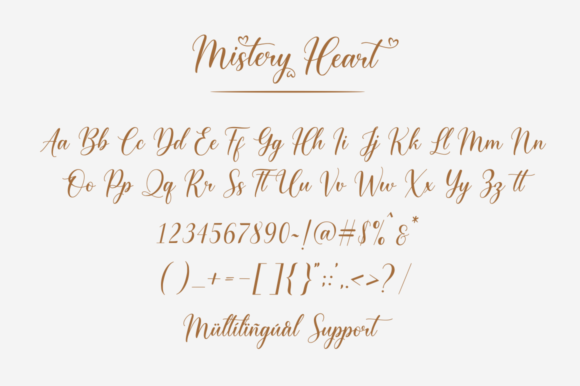 Mistery Heart
Aa Bb Cc Dd Ee Ff Gg Hh Ii Jj Kk Ll Mm Nn
Oo Pp Qq Rr Ss Tt Uu Vv Ww Xx Yy Zz tt
1234567890~!@#$%^&*
()_+=-[]{}";:',.<>?/
Mültilingúal Support